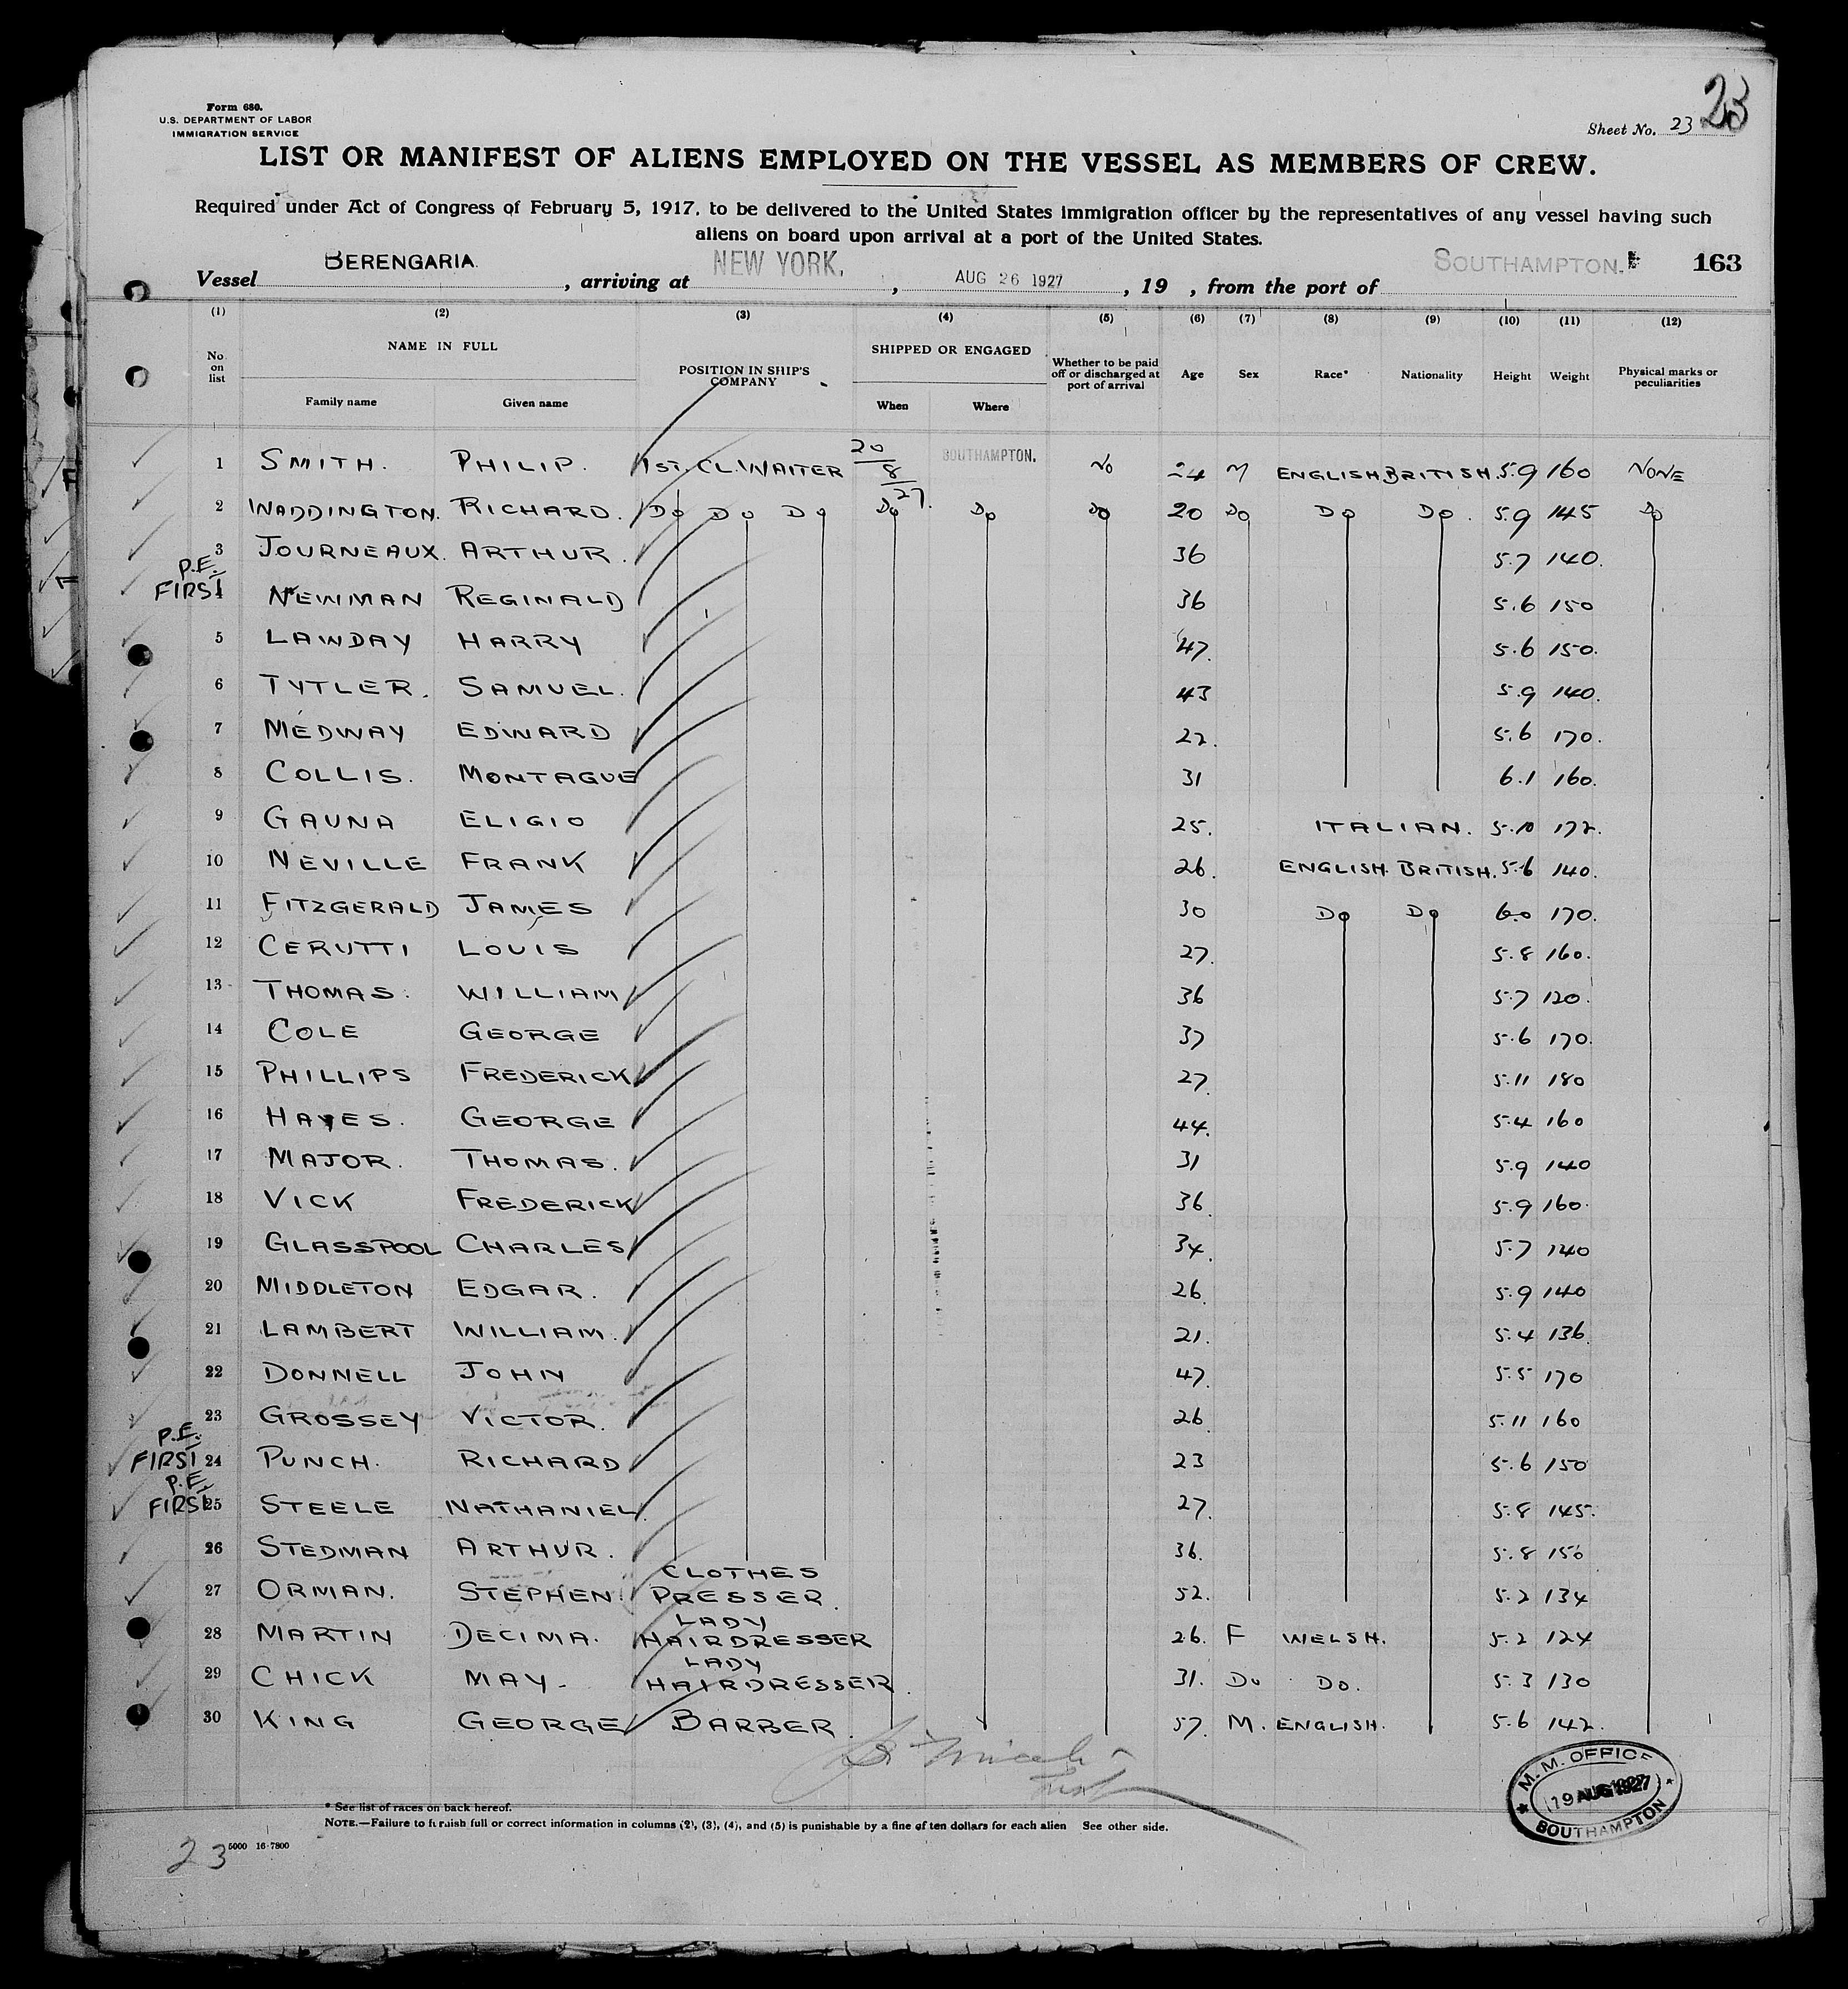 Form 680.
U.S. DEPARTMENT OF LABOR
IMMIGRATION SERVICE
23
Sheet No. 23
LIST OR MANIFEST OF ALIENS EMPLOYED ON THE VESSEL AS MEMBERS OF CREW.
Required under Act of Congress of February 5, 1917, to be delivered to the United States immigration officer by the representatives of any vessel having such
aliens on board upon arrival at a port of the United States.
Vessel BERENGARIA, arriving at NEW YORK, , AUG 26 1927, 19 , from the port of SOUTHAMPTON. 163
(1) (2) (3) (4) (5) (6) (7) (8) (9) (10) (11) (12)
No. on list NAME IN FULL POSITION IN SHIP'S COMPANY SHIPPED OR ENGAGED Whether to be paid off or discharged at port of arrival Age Sex Race* Nationality Height Weight Physical marks or peculiarities
Family name Given name When Where
1 SMITH. PHILIP. 1ST. CL. WAITER 20/8/27. SOUTHAMPTON. No 24 M ENGLISH BRITISH. 5.9 160 NONE
2 WADDINGTON. RICHARD. Do Do Do Do Do Do 20 Do Do Do. 5.9 145 Do
3 JOURNEAUX. ARTHUR. 36 5.7 140.
P.E.
FIRST 4 NEWMAN REGINALD 36 5.6 150
5 LAWDAY HARRY 47. 5.6 150.
6 TYTLER. SAMUEL. 43 5.9 140.
7 MEDWAY EDWARD 22. 5.6 170.
8 COLLIS. MONTAGUE 31 6.1 160.
9 GAUNA ELIGIO 25. ITALIAN. 5.10 172.
10 NEVILLE FRANK 26. ENGLISH. BRITISH. 5.6 140.
11 FITZGERALD JAMES 30 Do Do 6.0 170.
12 CERUTTI LOUIS 27. 5.8 160.
13 THOMAS. WILLIAM 36 5.7 120.
14 COLE GEORGE 37 5.6 170.
15 PHILLIPS FREDERICK 27. 5.11 180
16 HAYES. GEORGE 44. 5.4 160
17 MAJOR. THOMAS. 31 5.9 140
18 VICK FREDERICK 36. 5.9 160.
19 GLASSPOOL CHARLES 34. 5.7 140
20 MIDDLETON EDGAR. 26. 5.9 140
21 LAMBERT WILLIAM. 21. 5.4 136.
22 DONNELL JOHN 47. 5.5 170
23 GROSSEY VICTOR. 26. 5.11 160
P.E.
FIRST 24 PUNCH. RICHARD 23 5.6 150
P.E.
FIRST 25 STEELE NATHANIEL. 27. 5.8 145.
26 STEDMAN ARTHUR. 36. 5.8 150
27 ORMAN. STEPHEN CLOTHES PRESSER. 52. 5.2 134
28 MARTIN DECIMA. LADY HAIRDRESSER 26. F WELSH. 5.2 124
29 CHICK MAY. LADY HAIRDRESSER. 31. Do Do. 5.3 130
30 KING GEORGE BARBER. 57. M. ENGLISH. 5.6 142.
M.M. OFFICE
19 AUG 1927
SOUTHAMPTON
* See list of races on back hereof.
NOTE.—Failure to furnish full or correct information in columns (2), (3), (4), and (5) is punishable by a fine of ten dollars for each alien See other side.
23 5000 16-7800